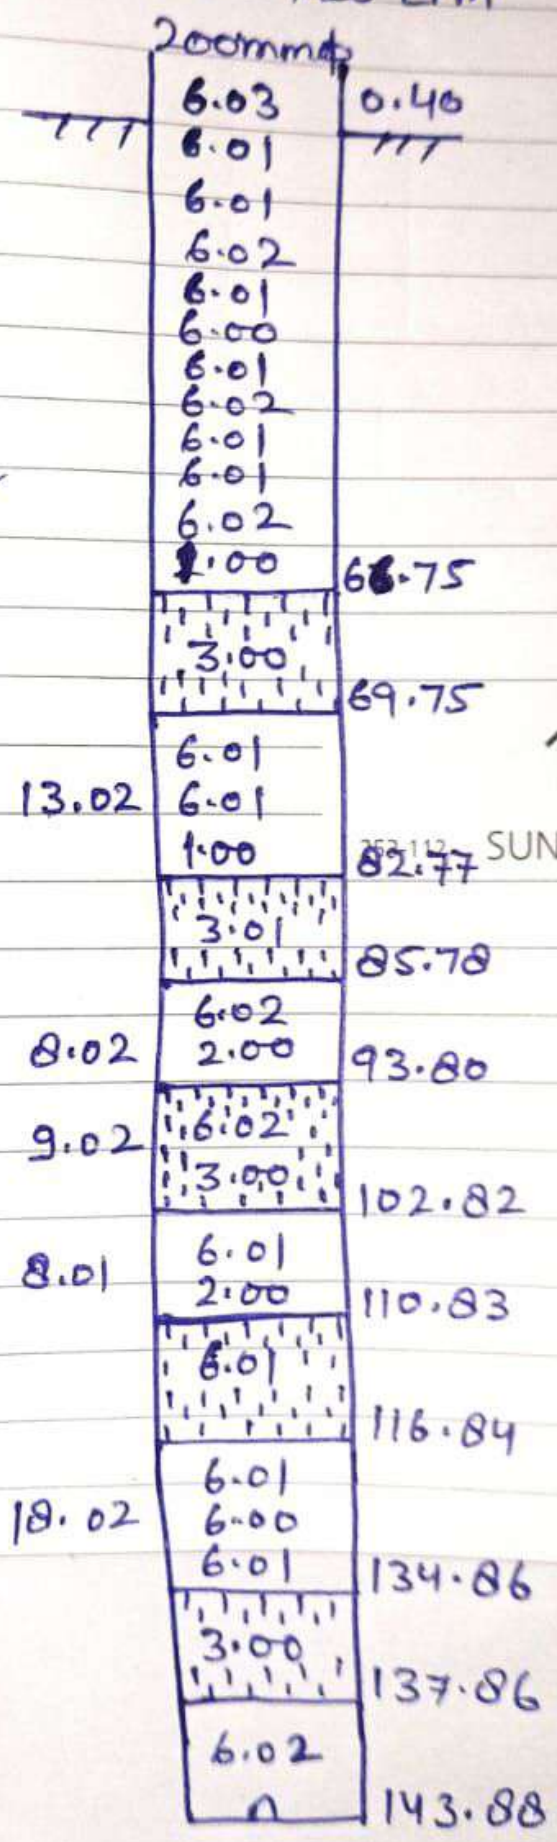 200mmφ
6.03 0.40
6.01
6.01
6.02
6.01
6.00
6.01
6.02
6.01
6.01
6.02
1.00 66.75
3.00
69.75
6.01
13.02 6.01
1.00 82.77 SUN
3.01
85.78
6.02
8.02 2.00 93.80
9.02 6.02
3.00 102.82
8.01 6.01
2.00 110.83
6.01
116.84
6.01
18.02 6.00
6.01 134.86
3.00
137.86
6.02
143.88